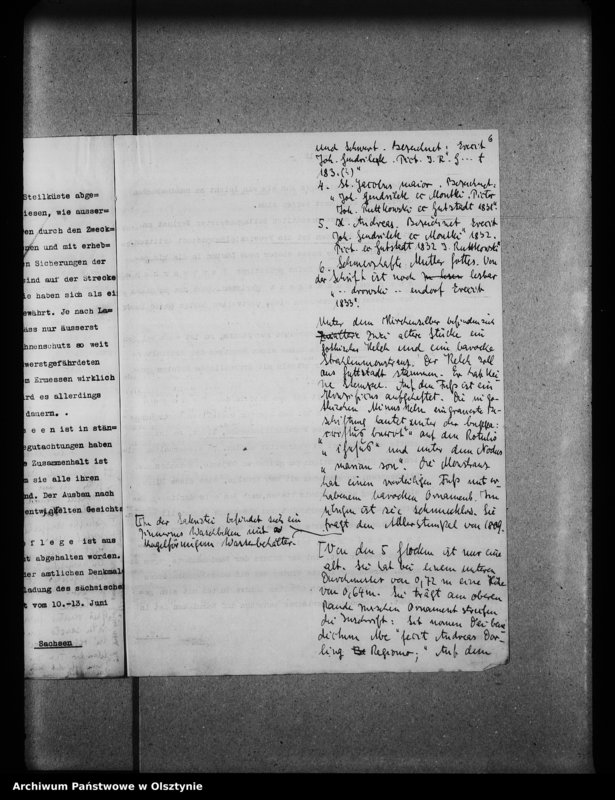 6
und Schwert. Bezeichnet: Erexit
Joh. Gendrilezk. Pict. J. R. G... t
183.(4)"
4. St. Jacobus maior. Bezeichnet:
"Joh. Gendrilek ex Montki. Pictor
Joh. Rutkowski ex Gutstadt 1831".
5. St. Andreas. Bezeichnet Erexit
Joh. Gendrilek ex Montki 1832.
Pict. ex Gutstadt 1832 J. Rutkowski"
6. Schmerzhafte Mutter Gottes. Von
der Schrift ist noch lesbar
".. drowski .. endorf Erexit
1833".
Unter dem Kirchensilber befinden sich
zwei ältere Stücke ein
gothischer Kelch und eine barocke
Strahlenmonstranz. Der Kelch soll
aus Guttstadt stammen. Er hat klei-
ne Stempel. Auf dem Fuß ist ein
Kruzifixus aufgeheftet. Die in go-
thischen Minuskeln eingravierte In-
schrift lautet unter der Kuppa:
auf den Rotulis
und unter dem Nodus
"marian son". Die Monstranz
hat einen vierteiligen Fuß mit er-
habenem barocken Ornament. Im
übrigen ist sie schmucklos. Sie
trägt den Adlerstempel von 1809.
[In der Sakristei befindet sich ein
zinnernes Waschbecken mit
kugelförmigem Wasserbehälter.
[Von den 5 Glocken ist nur eine
alt. Sie hat bei einem unteren
Durchmesser von 0,72 m eine Höhe
von 0,64 m. Sie trägt am oberen
Rande zwischen Ornamentstreifen
die Inschrift: Sit nomen Dei bene
dictum Me fecit Andreas Dor-
ling Regiomo;" Auf dem
Steilküste abge=
iesen, wie ausser=
en durch den Zweck=
nen und mit erheb=
n Sicherungen der
sind auf der Strecke
ie haben sich als ei
währt. Je nach La=
ass nur äusserst
hnenschutz so weit
werstgefährdeten
m Ermessen wirklich
rd es allerdings
dauern.
e e n ist in stän=
egutachtungen haben
e Zusammenhalt ist
m sie alle ihren
nd. Der Ausbau nach
entwickelten Gesichts
f l e g e ist aus
t abgehalten worden.
er amtlichen Denkmal
ladung des sächsische
t vom 10.-13. Juni
Sachsen
Archiwum Państwowe w Olsztynie